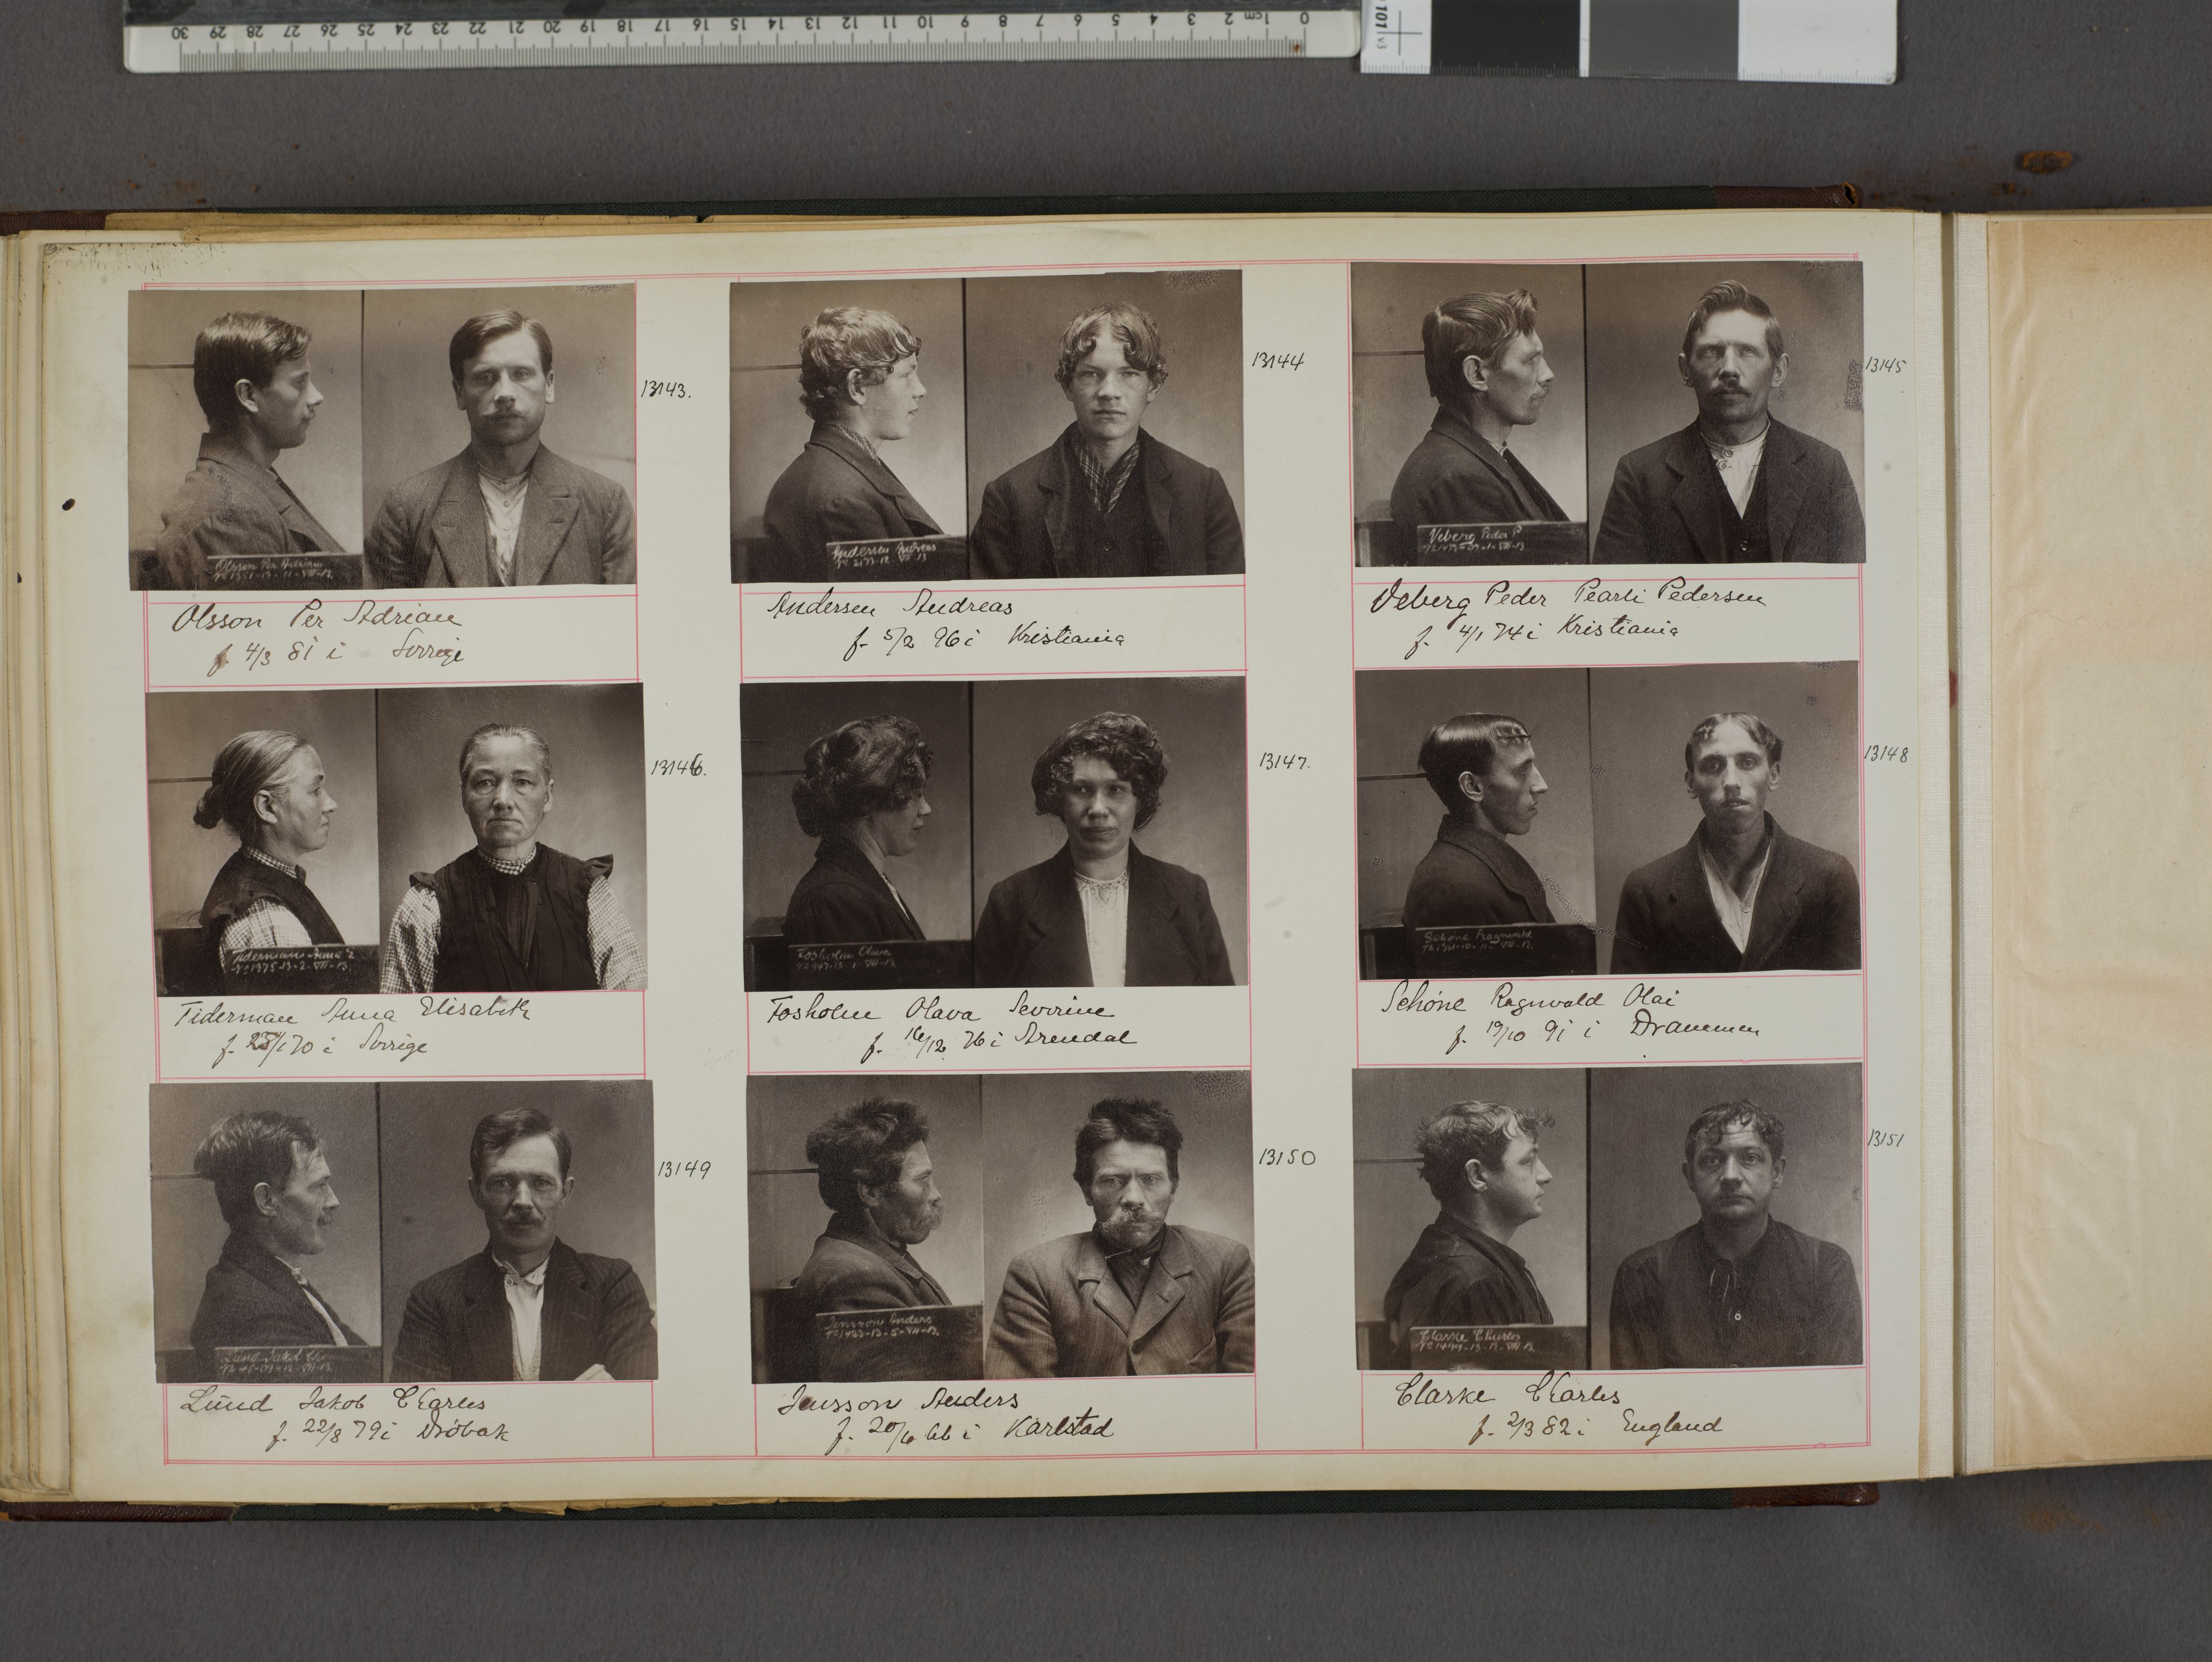 30 29 28 27 26 25 24 23 22 21 20 19 18 17 16 15 14 13 12 11 10 9 8 7 6 5 4 3 2 1cm 0
101 v3
13143.
Olsson Per Adrian
Olsson Per Adrian
f. 4/3 81 i Sverrige
13144
Andersen Andreas
No 2173-12- VII-13
Andersen Andreas
f. 5/2 96 i Kristiania
13145
Veberg Peder P
Veberg Peder Pearli Pedersen
f. 4/1 74 i Kristiania
13146.
Tiderman Anna E
No 1375-13-2-VII-13.
Tiderman Anna Elisabeth
f. 1 70 i Sverige
13147.
Fosholm Olava
No 947-13-1-VII-13
Fosholm Olava Severine
f. 16/12 76 i Arendal
13148
Schöne Ragnvald
Schöne Ragnvald Olai
f. 19/10 91 i Drammen
13149
Lund Jakob Ch
Lund Jakob Charles
f. 22/8 79 i Dröbak
13150
Jensson Anders
No 1423-13-5-VII-13.
Jensson Anders
f. 20/6 66 i Karlstad
13151
Clarke Charles
Clarke Charles
f. 2/3 82 i England